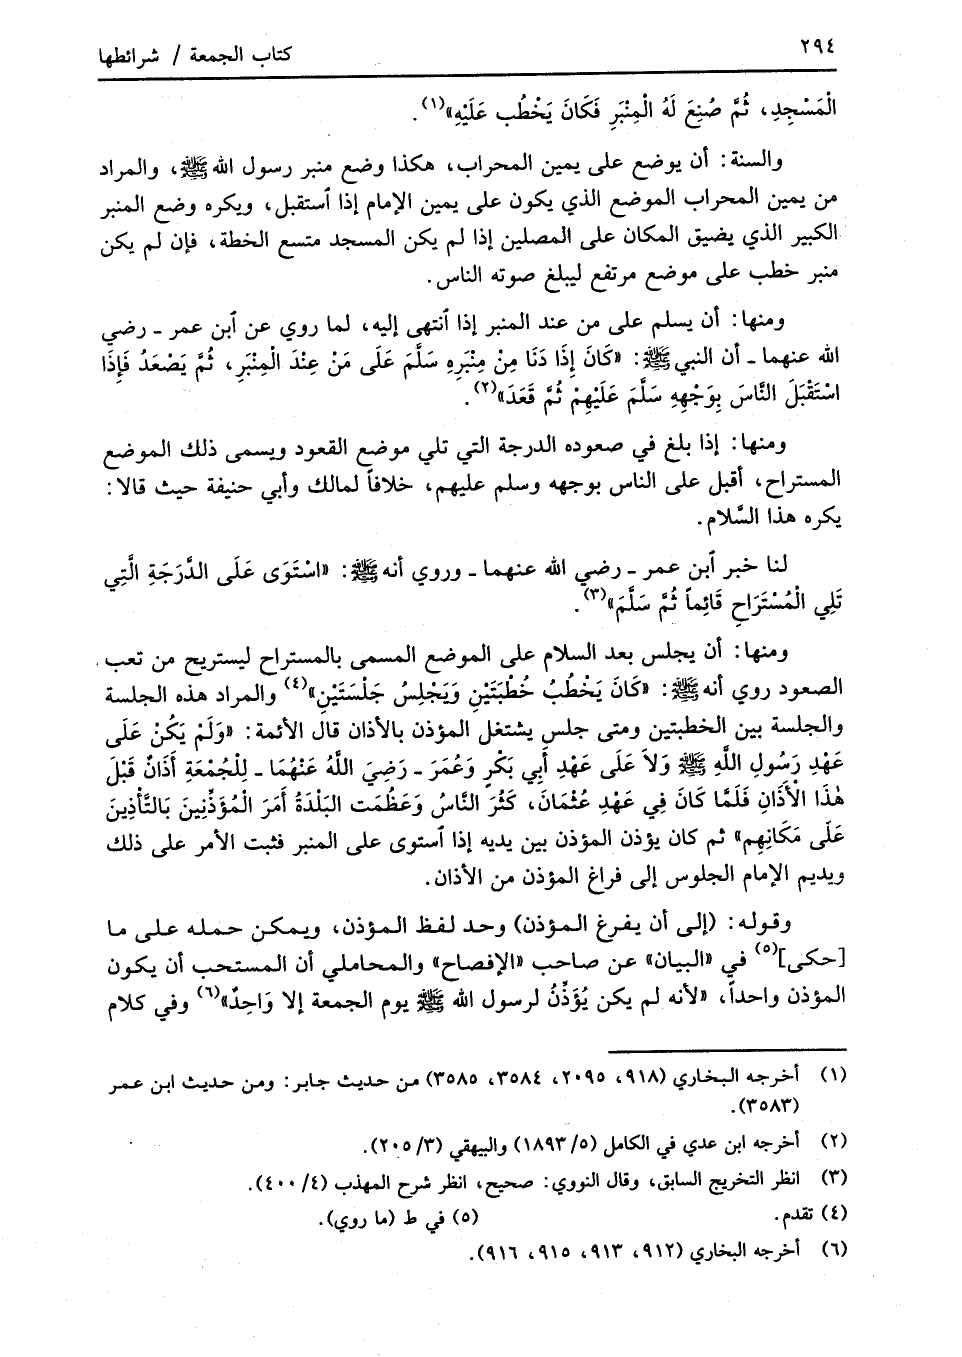 ٢٩٤
كتاب الجمعة / شرائطها
الْمَسْجِدِ، ثُمَّ صُنِعَ لَهُ الْمِنْبَرِ فَكَانَ يَخْطُب عَلَيْهِ»(١).
والسنة: أن يوضع على يمين المحراب، هكذا وضع منبر رسول الله ﷺ، والمراد
من يمين المحراب الموضع الذي يكون على يمين الإمام إذا ٱستقبل، ويكره وضع المنبر
الكبير الذي يضيق المكان على المصلين إذا لم يكن المسجد متسع الخطة، فإن لم يكن
منبر خطب على موضع مرتفع ليبلغ صوته الناس.
ومنها: أن يسلم على من عند المنبر إذا ٱنتهى إليه، لما روي عن ٱبن عمر ـ رضي
الله عنهما ـ أن النبي ﷺ: «كَانَ إِذَا دَنَا مِنْ مِنْبَرِهِ سَلَّمَ عَلَى مَنْ عِنْدَ الْمِنْبَرِ، ثُمَّ يَصْعَدُ فَإِذَا
اسْتَقْبَلَ النَّاسَ بِوَجْهِهِ سَلَّمَ عَلَيْهِمْ ثُمَّ قَعَدَ»(٢).
ومنها: إذا بلغ في صعوده الدرجة التي تلي موضع القعود ويسمى ذلك الموضع
المستراح، أقبل على الناس بوجهه وسلم عليهم، خلافاً لمالك وأبي حنيفة حيث قالا:
يكره هذا السَّلام.
لنا خبر ٱبن عمر ـ رضي الله عنهما ـ وروي أنه ﷺ: «اسْتَوَى عَلَى الدَّرَجَةِ الَّتِي
تَلِي الْمُسْتَرَاحِ قَائِماً ثُمَّ سَلَّمَ»(٣).
ومنها: أن يجلس بعد السلام على الموضع المسمى بالمستراح ليستريح من تعب
الصعود روي أنه ﷺ: «كَانَ يَخْطُبُ خُطْبَتَيْنِ وَيَجْلِسُ جَلْسَتَيْنِ»(٤) والمراد هذه الجلسة
والجلسة بين الخطبتين ومتى جلس يشتغل المؤذن بالأذان قال الأئمة: «وَلَمْ يَكُنْ عَلَى
عَهْدِ رَسُولِ اللَّهِ ﷺ وَلاَ عَلَى عَهْدِ أَبِي بَكْرٍ وَعُمَرَ ـ رَضِيَ اللَّهُ عَنْهُمَا ـ لِلْجُمْعَةِ أَذَانٌ قَبْلَ
هٰذَا الْأَذَانِ فَلَمَّا كَانَ فِي عَهْدِ عُثْمَانَ، كَثُرَ النَّاسُ وَعَظُمَت البَلْدَةُ أَمَرَ الْمُؤَذِّنِينَ بَالتَّأْذِينَ
عَلَى مَكَانِهِم» ثم كان يؤذن المؤذن بين يديه إذا ٱستوى على المنبر فثبت الأمر على ذلك
ويديم الإمام الجلوس إلى فراغ المؤذن من الأذان.
وقوله: (إلى أن يفرغ المؤذن) وحد لفظ المؤذن، ويمكن حمله على ما
[حكى](٥) في «البيان» عن صاحب «الإفصاح» والمحاملي أن المستحب أن يكون
المؤذن واحداً، «لأنه لم يكن يُؤَذِّنُ لرسول الله ﷺ يوم الجمعة إلا وَاحِدٌ»(٦) وفي كلام
(١) أخرجه البخاري (٩١٨، ٢٠٩٥، ٣٥٨٤، ٣٥٨٥) من حديث جابر: ومن حديث ابن عمر
(٣٥٨٣).
(٢) أخرجه ابن عدي في الكامل (١٨٩٣/٥) والبيهقي (٢٠٥/٣).
(٣) انظر التخريج السابق، وقال النووي: صحيح، انظر شرح المهذب (٤٠٠/٤).
(٤) تقدم. (٥) في ط (ما روي).
(٦) أخرجه البخاري (٩١٢، ٩١٣، ٩١٥، ٩١٦).